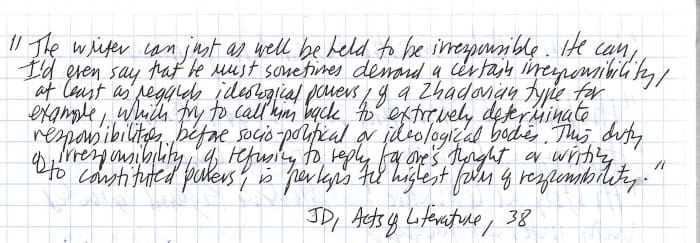 " The writer can just as well be held to be irresponsible. He can,
I'd even say that he must sometimes demand a certain irresponsibility,
at least as regards ideological powers, of a Zhadovian type for
example, which try to call him back to extremely determinate
responsibilities before socio-political or ideological bodies. This duty
of irresponsibility, of refusing to reply for one's thought or writing
to constituted powers, is perhaps the highest form of responsibility."
JD, Acts of Literature, 38